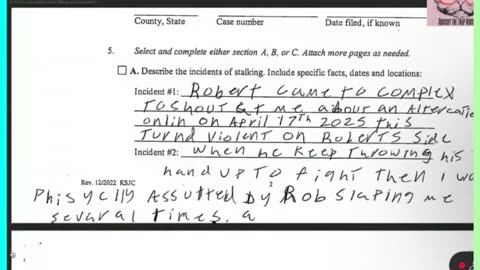 County, State Case number Date filed, if known
5. Select and complete either section A, B, or C. Attach more pages as needed.
A. Describe the incidents of stalking. Include specific facts, dates and locations:
Incident #1: Robert came to complex
To shout at me about an Altercatio
onlin on April 17th 2025 this
turnd violent on Roberts side
Incident #2: when he keep Throwing his
hand up To fight Then I wa
Rev. 12/2022 KSJC
Phisyclly Assulted by Rob slaping me
2
sevaral times. a